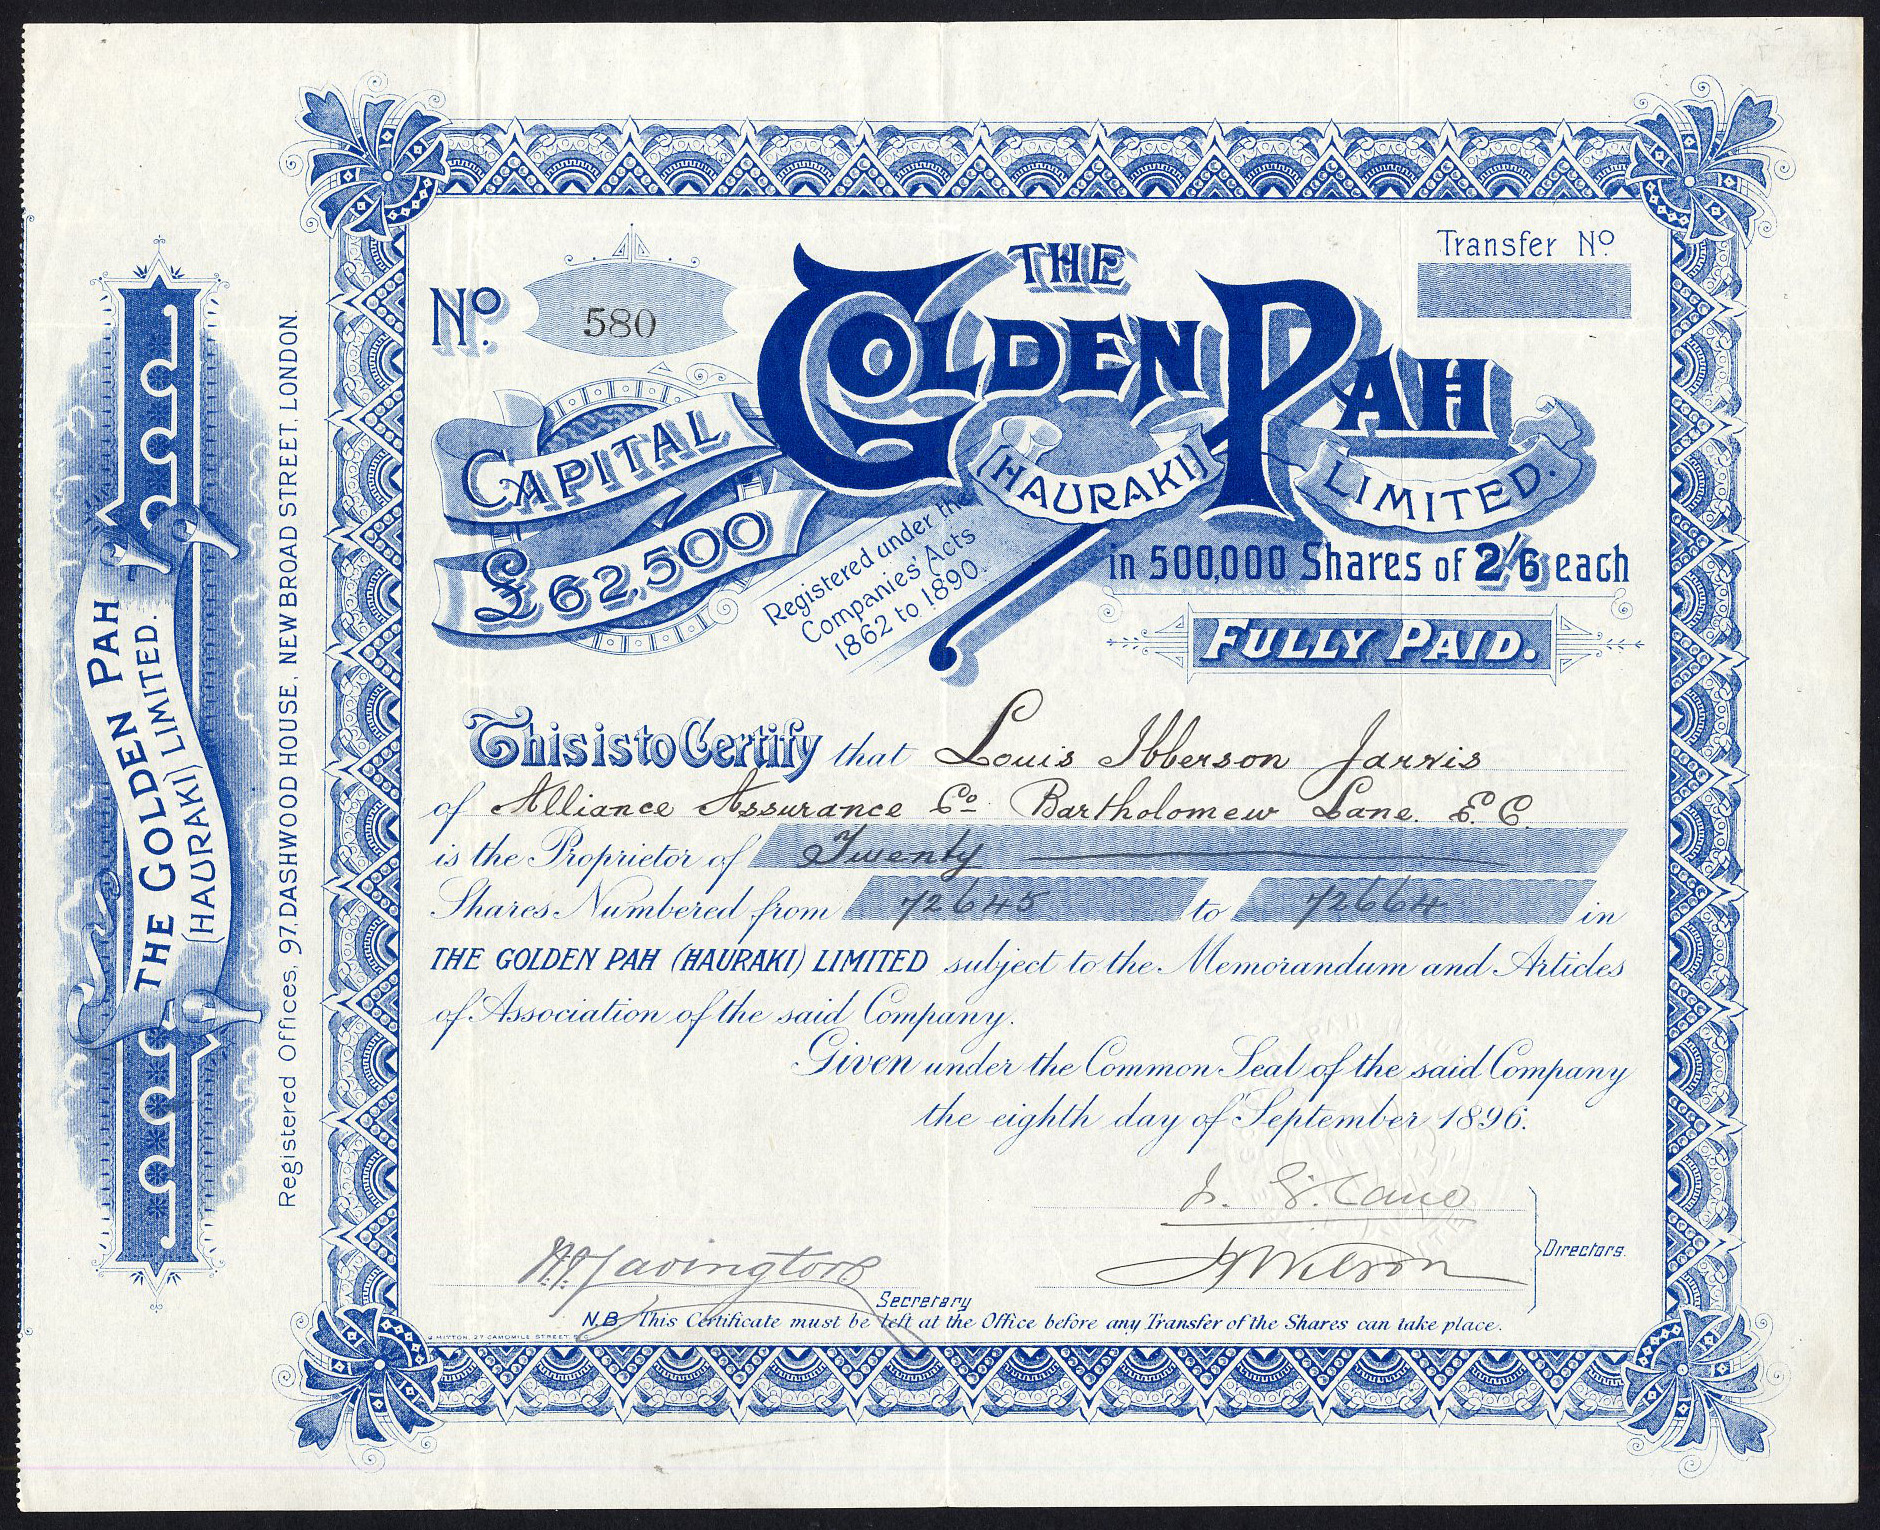 THE GOLDEN PAH
(HAURAKI) LIMITED.
Registered Offices, 97, DASHWOOD HOUSE, NEW BROAD STREET, LONDON.
No. 580
Transfer No.
THE
GOLDEN PAH
(HAURAKI) LIMITED.
CAPITAL
£62,500
Registered under the
Companies' Acts
1862 to 1890.
in 500,000 Shares of 2/6 each
FULLY PAID.
This is to Certify that Louis Ibberson Jarvis
of Alliance Assurance Co. Bartholomew Lane. E.C.
is the Proprietor of Twenty
Shares Numbered from 72645 to 72664 in
THE GOLDEN PAH (HAURAKI) LIMITED subject to the Memorandum and Articles
of Association of the said Company.
Given under the Common Seal of the said Company
the eighth day of September 1896.
Directors.
Wilson
Secretary
N.B. This Certificate must be left at the Office before any Transfer of the Shares can take place.
MITTON, 27 CAMOMILE STREET, E.C.